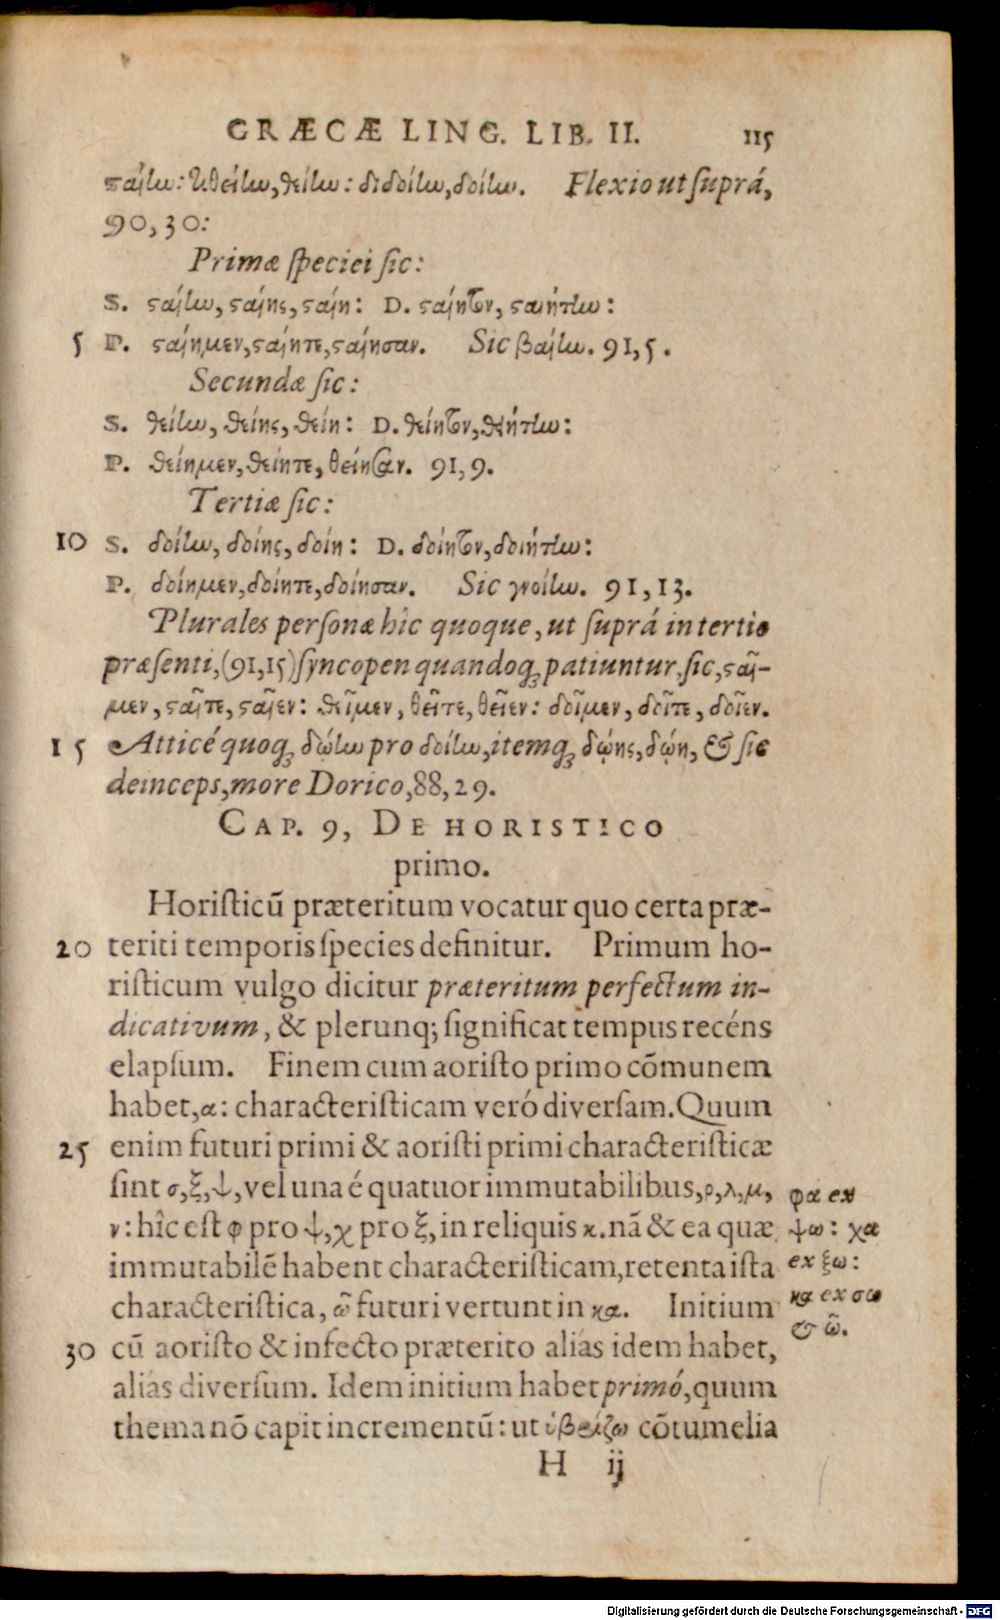 GRÆCÆ LING. LIB. II. 115
σαίην: τιθείην, θείην: διδοίην, δοίην. Flexio ut ſuprá,
90, 30:
Primæ ſpeciei ſic:
S. σταίην, σταίης, σταίη: D. σταίητον, σταιήτην:
5 P. σταίημεν, σταίητε, σταίησαν. Sic βαίην. 91, 5.
Secundæ ſic:
S. θείην, θείης, θείη: D. θείητον, θειήτην:
P. θείημεν, θείητε, θείησαν. 91, 9.
Tertiæ ſic:
10 S. δοίην, δοίης, δοίη: D. δοίητον, δοιήτην:
P. δοίημεν, δοίητε, δοίησαν. Sic γνοίην. 91, 13.
Plurales perſonæ hîc quoque, ut ſuprá in tertio
præſenti, (91, 15) ſyncopen quandoq; patiuntur, ſic, σταῖ-
μεν, σταῖτε, σταῖεν: θεῖμεν, θεῖτε, θεῖεν: δοῖμεν, δοῖτε, δοῖεν.
15 Atticé quoq; δῴην pro δοίην, itemq; δῴης, δῴη, & ſic
deinceps, more Dorico, 88, 29.
CAP. 9, DE HORISTICO
primo.
Horiſticũ præteritum vocatur quo certa præ-
20 teriti temporis ſpecies definitur. Primum ho-
riſticum vulgo dicitur præteritum perfectum in-
dicativum, & plerunq; ſignificat tempus recéns
elapſum. Finem cum aoriſto primo cõmunem
habet, α: characteriſticam veró diverſam. Quum
25 enim futuri primi & aoriſti primi characteriſticæ
ſint σ, ξ, ψ, vel una é quatuor immutabilibus, ρ, λ, μ,
ν: hîc eſt φ pro ψ, χ pro ξ, in reliquis κ. nã & ea quæ
immutabilẽ habent characteriſticam, retenta iſta
characteriſtica, ῶ futuri vertunt in κα. Initium
30 cũ aoriſto & infecto præterito aliás idem habet,
aliás diverſum. Idem initium habet primó, quum
thema nõ capit incrementũ: ut ὑβρίζω cõtumelia
H ij
φα ex
ψω: χα
ex ξω:
κα ex σω
& ῶ.
Digitalisierung gefördert durch die Deutsche Forschungsgemeinschaft - DFG